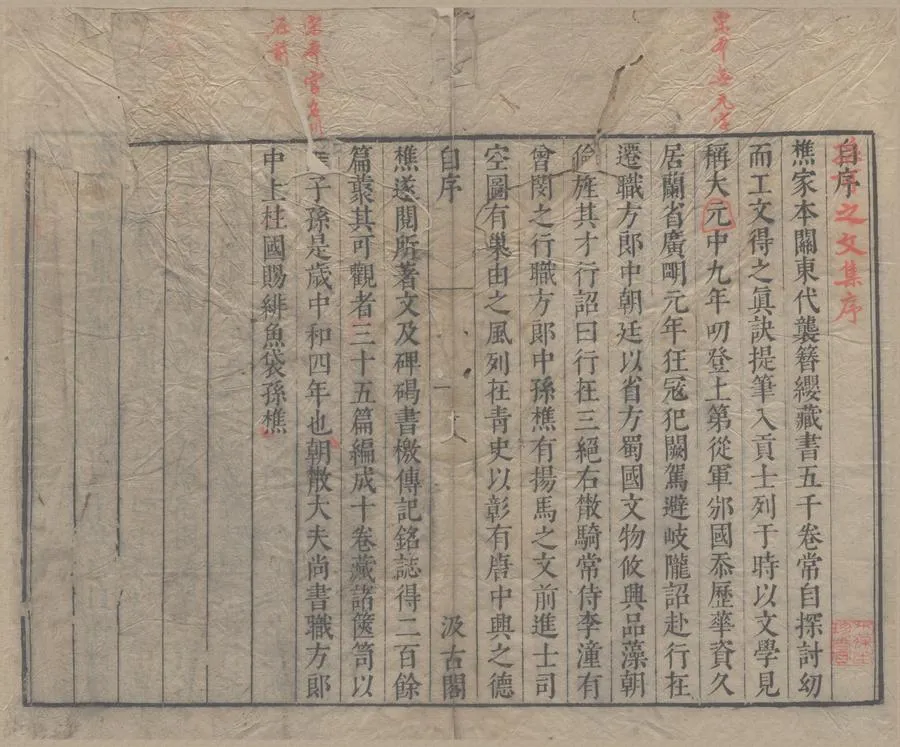 宋本無元字
之文集序
自序
樵家本關東代襲簪纓藏書五千卷常自探討幼
而工文得之眞訣提筆入貢士列于時以文學見
稱大元中九年叨登上第從軍邠國忝歷華資久
居蘭省廣明元年狂冦犯闕駕避岐隴詔赴行在
遷職方郎中朝廷以省方蜀國文物攸興品藻朝
倫旌其才行詔曰行在三絕右散騎常侍李潼有
曾閔之行職方郎中孫樵有揚馬之文前進士司
空圖有巢由之風列在青史以彰有唐中興之德
自序 一 汲古閣
樵遂閱所著文及碑碣書檄傳記銘誌得二百餘
篇藂其可觀者三十五篇編成十卷藏諸篋笥以
子孫是歲中和四年也朝散大夫尚書職方郎
中上柱國賜緋魚袋孫樵
宋本官名
在前